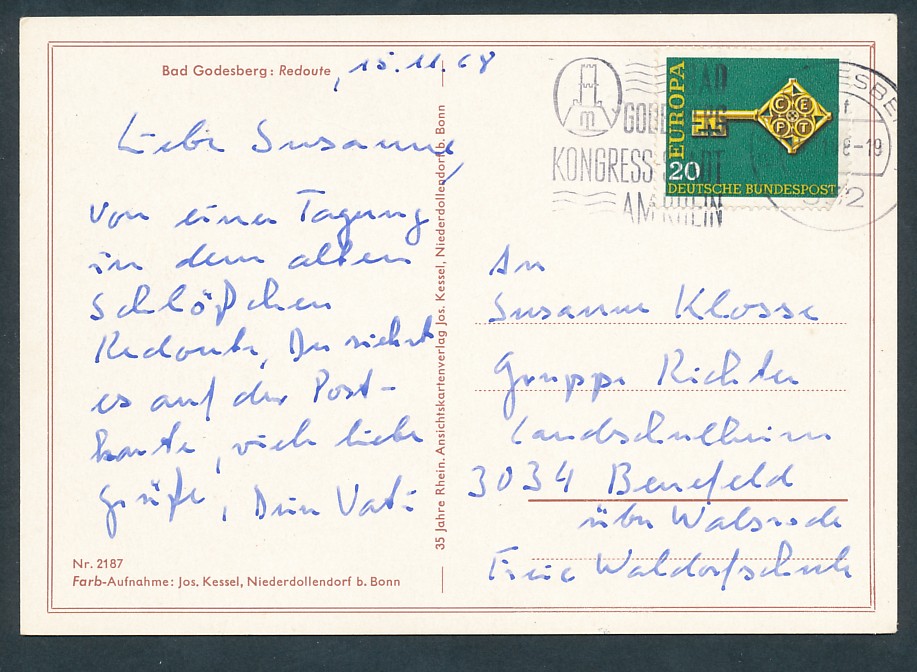 Bad Godesberg: Redoute
, 15.11.68
Liebe Susanne,
von einer Tagung
in dem alten
Schlößchen
Redoute, Du siehst
es auf der Post-
karte, viele liebe
Grüße, Dein Vati
Nr. 2187
Farb-Aufnahme: Jos. Kessel, Niederdollendorf b. Bonn
35 Jahre Rhein. Ansichtskartenverlag Jos. Kessel, Niederdollendorf b. Bonn
m
BAD
GODESBERG
KONGRESS STADT
AM RHEIN
EUROPA
CEPT
20
DEUTSCHE BUNDESPOST
8-19
An
Susanne Klosse
Gruppe Richter
Landschulheim
3034 Benefeld
über Walsrode
Freie Waldorfschule